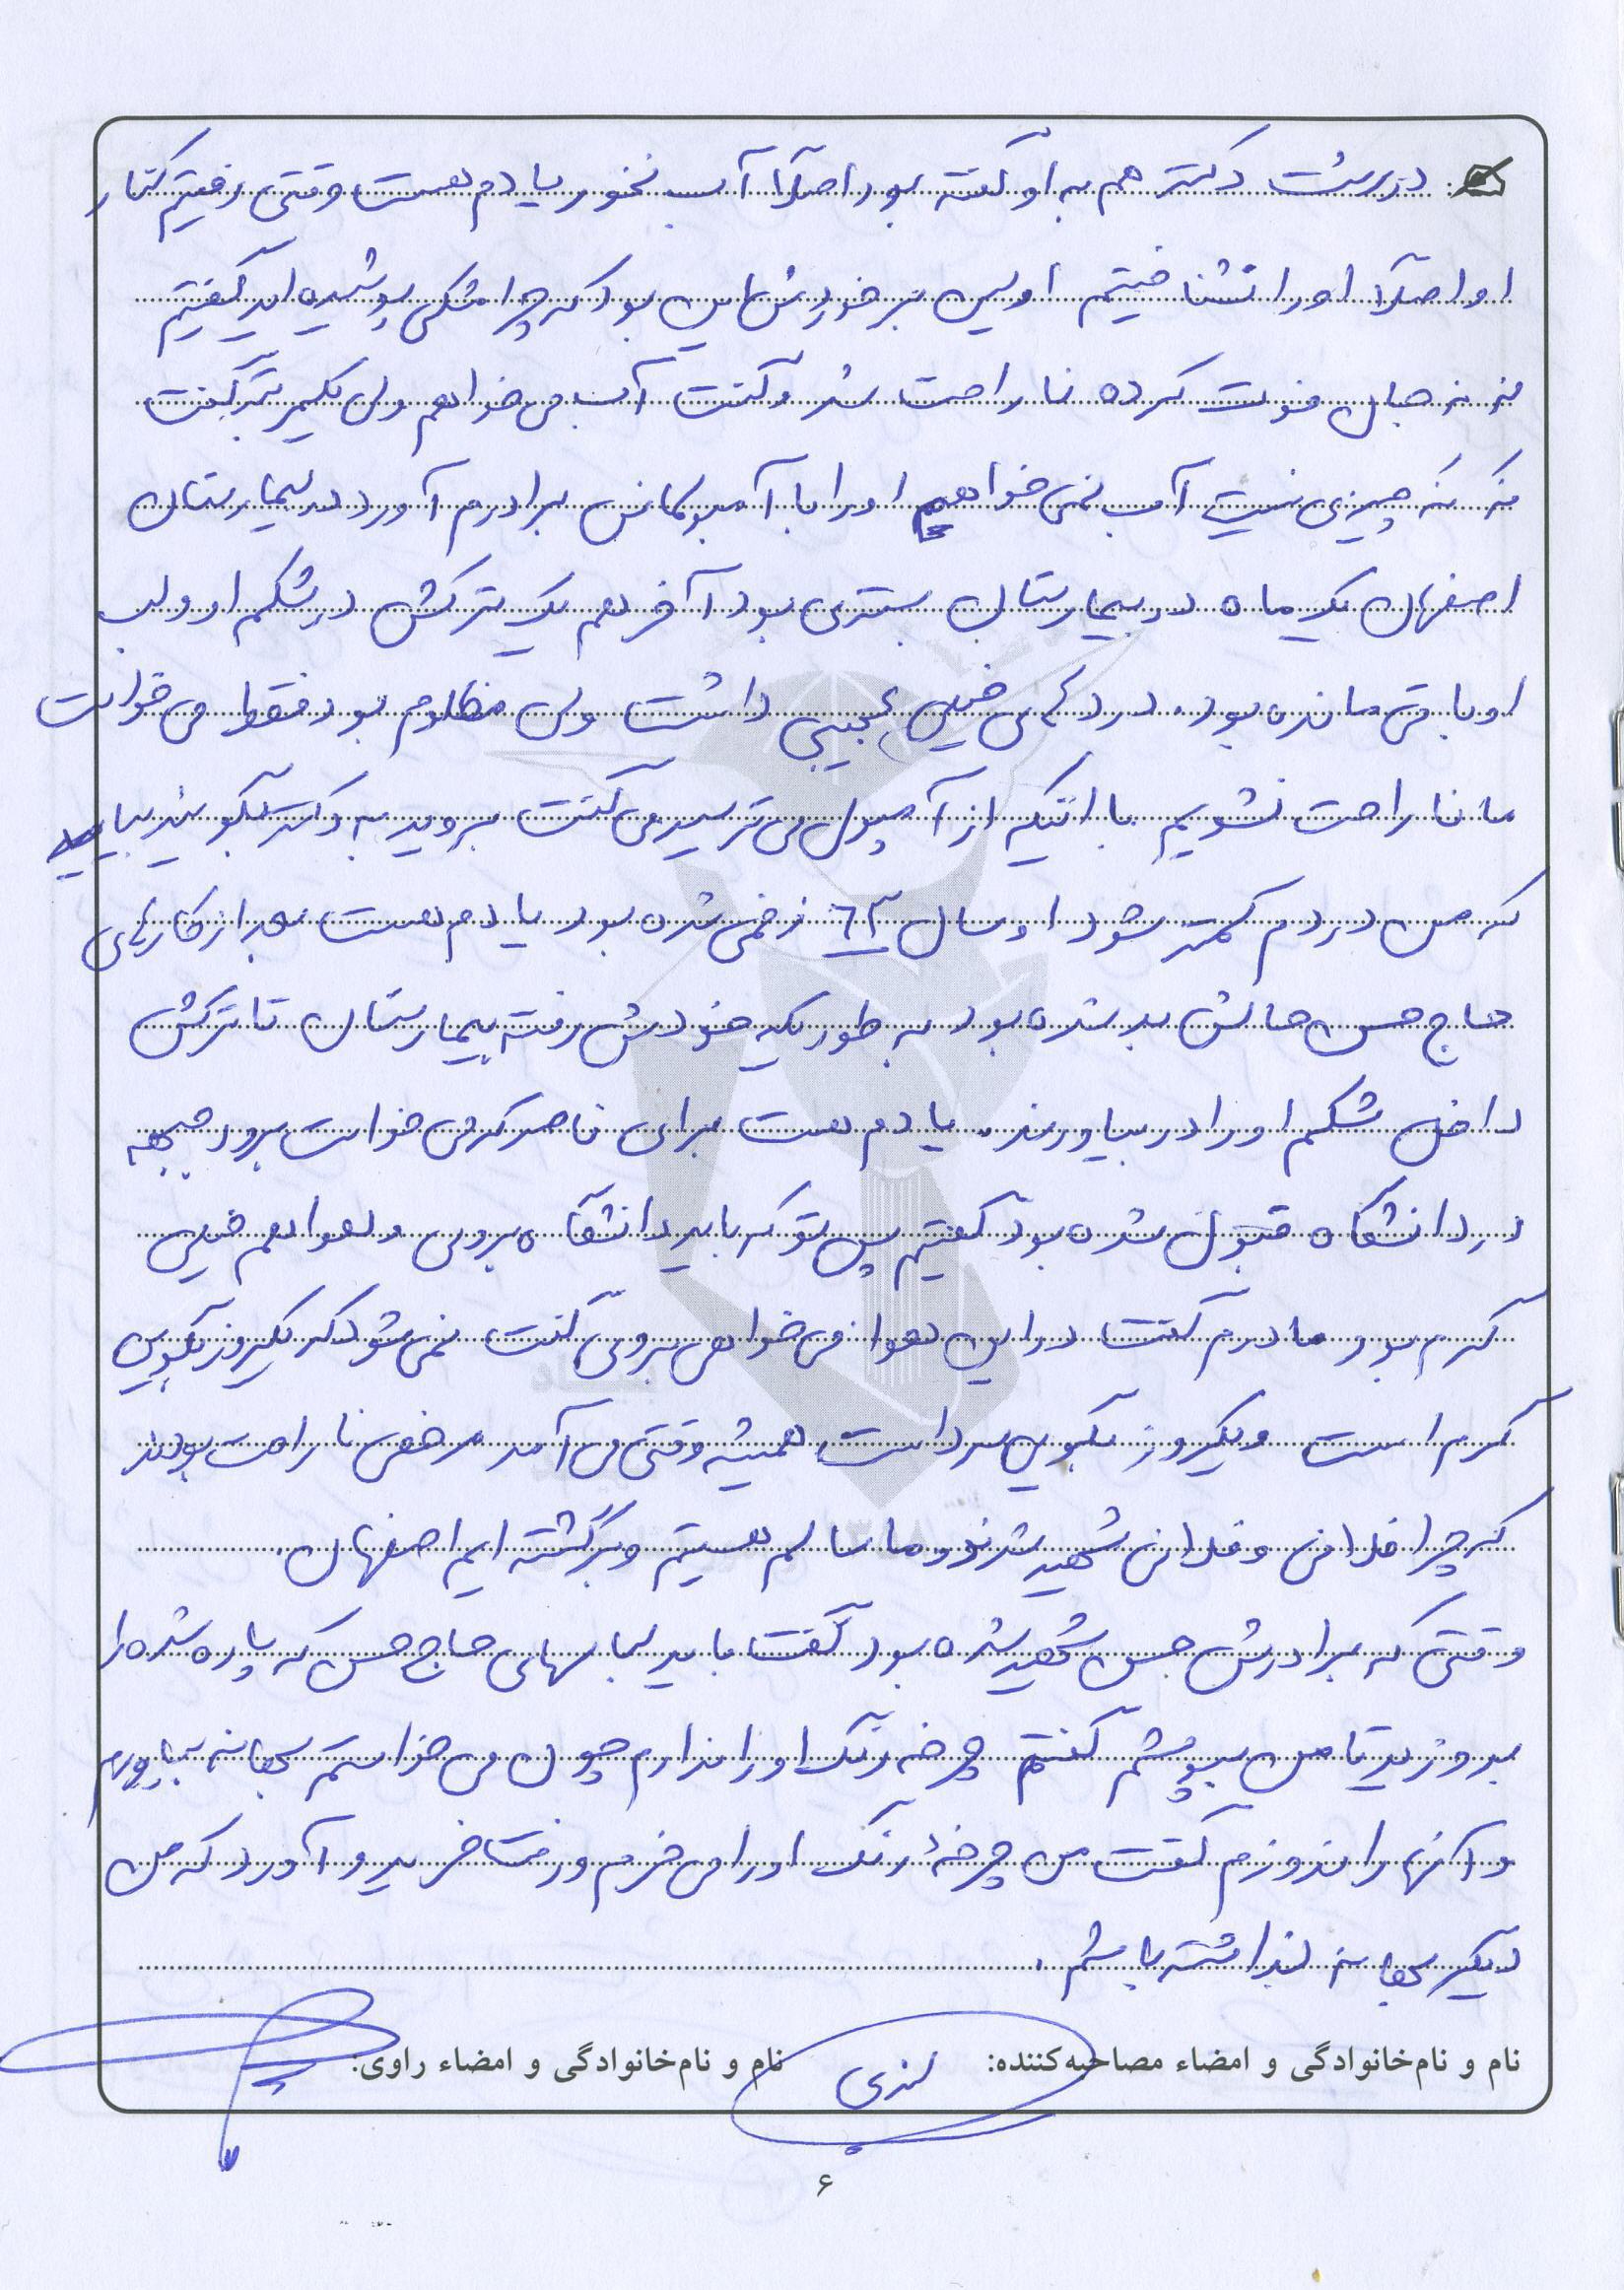 درست دکتر هم به او گفته بود اصلاً آب نخور یادم هست وقتی رفتیم کنار
او اصلاً او را نشناختیم اولین برخوردش این بود که چرا مشکی پوشیده اید گفتیم
ننه جان فوت کرده ناراحت شد و گفت آب می خواهم ولی گفت
نه نه چیزی نیست آب نمی خواهم او را با آمبولانس برادرم آورد در بیمارستان
اصفهان یک ماه در بیمارستان بستری بود آخر هم یک ترکش در شکم او و لب
او باقی مانده بود. دردهای خیلی عجیبی داشت ولی مظلوم بود فقط می خواست
ما ناراحت نشویم با اینکه از آمپول می ترسید می گفت بروید به دکتر بگویید بیاید
که من دردم کمتر شود او سال ٦٢ زخمی شده بود یادم هست بعد از کارهای
حاج حسن حالش بد شده بود به طوریکه خودش رفته بیمارستان تا ترکش
داخل شکم او را در بیاورند. یادم هست برای ناصر که می خواست برود جبهه
در دانشگاه قبول شده بود گفتیم پس تو که باید دانشگاه بروی و هوا هم خیلی
گرم بود مادرم گفت در این هوا می خواهی بروی گفت نمی شود که یکروز بگویی
گرم است و یکروز بگویی سرد است همیشه وقتی می آمد مرخصی ناراحت بودند
که چرا فلانی و فلانی شهید شدند و ما سالم هستیم و برگشته ایم اصفهان.
وقتی که برادرش حسن شهید شده بود گفت باید لباسهای حاج حسن که پاره شده را
بدوزید تا من بپوشم گفتم چرخه رنگ او را ندارم چون می خواستم بهانه بیاورم
و آنها را ندوزم گفت من چرخهٔ رنگ او را می خرم و رفت خرید و آورد که من
دیگر بهانه نداشته باشم.
نام و نام‌خانوادگی و امضاء مصاحبه‌کننده: نام و نام‌خانوادگی و امضاء راوی:
۶